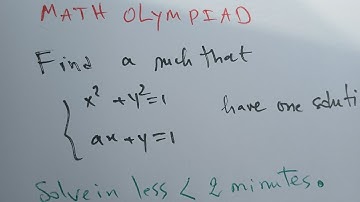 MATH OLYMPIAD
Find a such that
x² + y² = 1 have one soluti
ax + y = 1
Solve in less < 2 minutes.